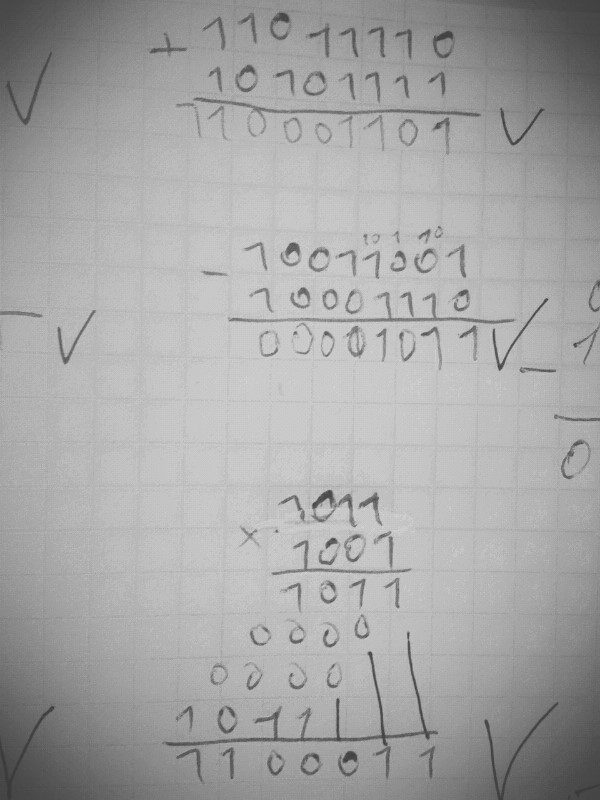 + 11011110
10101111
110001101
- 10011001
10001110
00001011
× 1011
1001
1011
0000
0000
1011
1100011